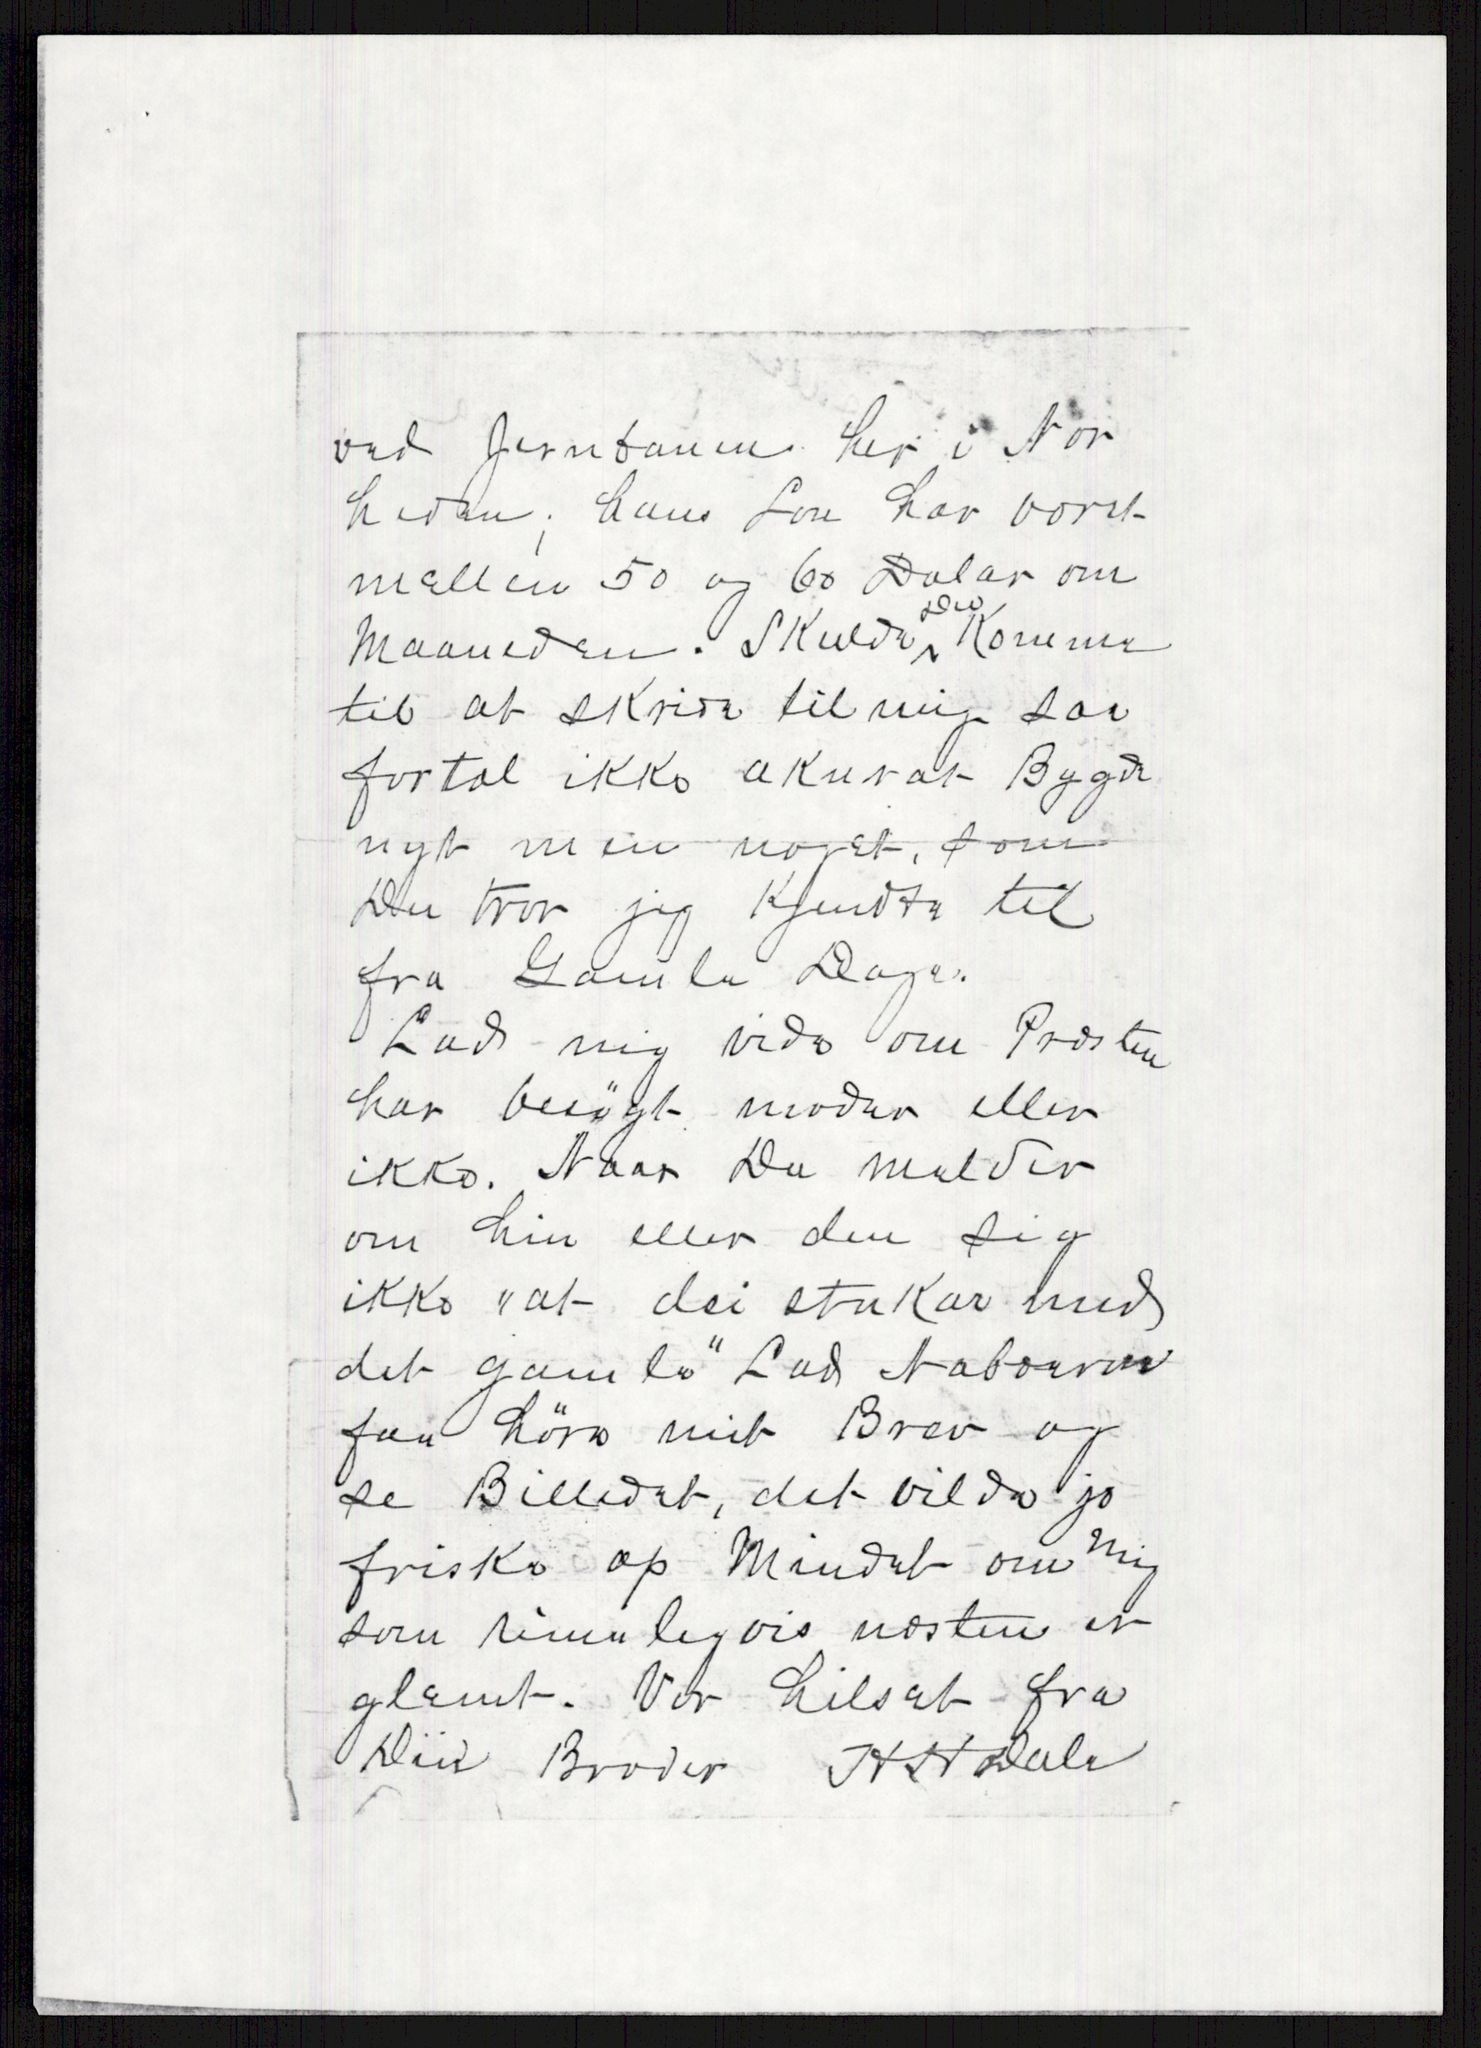 ved Jernbanen her i Nær
heden; hans Løn har været
mellem 50 og 60 Dalar om
Maaneden. Skulde Du Komme
til at skrive til mig saa
fortæl ikke akurat Bygde
nyt men noget, som
Du tror jeg Kjendte til
fra Gamle Dage.
Lad mig vide om Præsten
har besögt moder eller
ikke. Naar Du melder
om hin eller den sig
ikke "at dei stukar med
det gamle" Lad Naboerne
faa höre mit Brev og
se Billedet, det vilde jo
friske op Mindet om Mig
som rimeligvis næsten er
glemt. Vær hilset fra
Din Broder H H Dale